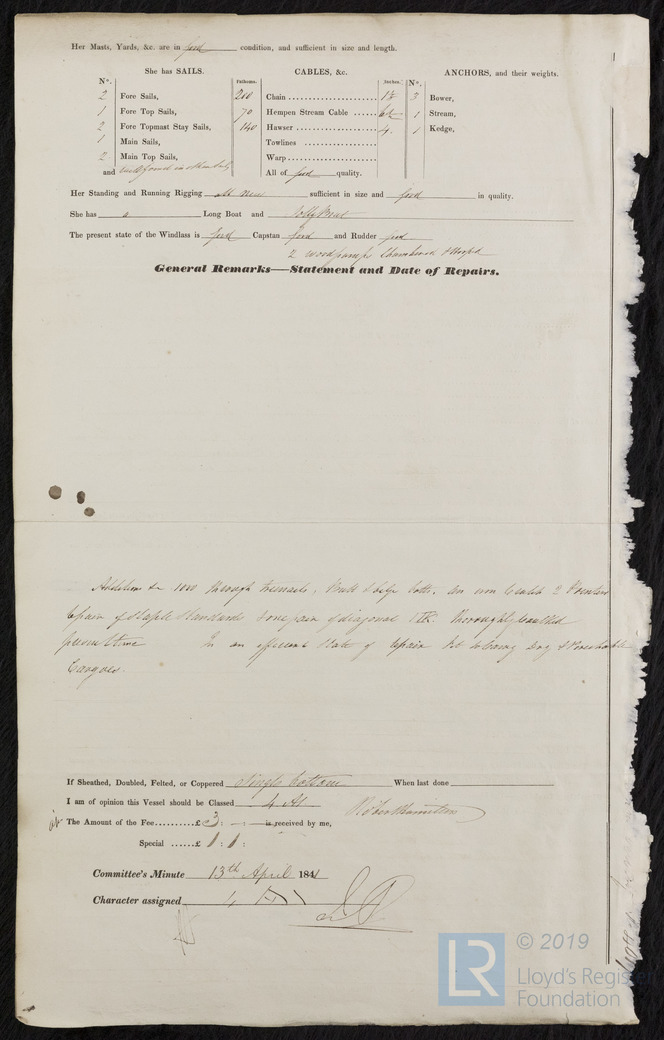 Her Masts, Yards, &c. are in good condition, and sufficient in size and length.
She has SAILS.
CABLES, &c.
ANCHORS, and their weights.
No.
Fathoms.
Inches.
No.
2 Fore Sails, 200 Chain 3 Bower,
1 Fore Top Sails, 70 Hempen Stream Cable 1 Stream,
2 Fore Topmast Stay Sails, 140 Hawser 4 1 Kedge,
1 Main Sails, Towlines
2 Main Top Sails, Warp
and well found in others All of good quality.
Her Standing and Running Rigging all new sufficient in size and good in quality.
She has a Long Boat and Jolly Boat
The present state of the Windlass is good Capstan good and Rudder good
2 wood pumps
General Remarks—Statement and Date of Repairs.
through treenails, an iron 2
pair of Staple Standards & one pair of diagonal thoroughly caulked
In an efficient State of repair Dry & Perishable
Cargoes.
If Sheathed, Doubled, Felted, or Coppered Single bottom When last done
I am of opinion this Vessel should be Classed 4 A1
The Amount of the Fee £ 3 : - : - is received by me,
Special £ 1 : 1 :
Committee's Minute 13th April 1841
Character assigned 4 A1
© 2019
LR
Lloyd's Register
Foundation